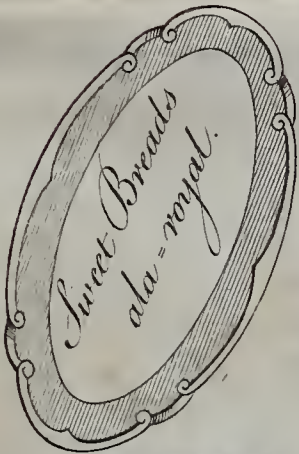 Sweet-Breads
ala = royal.